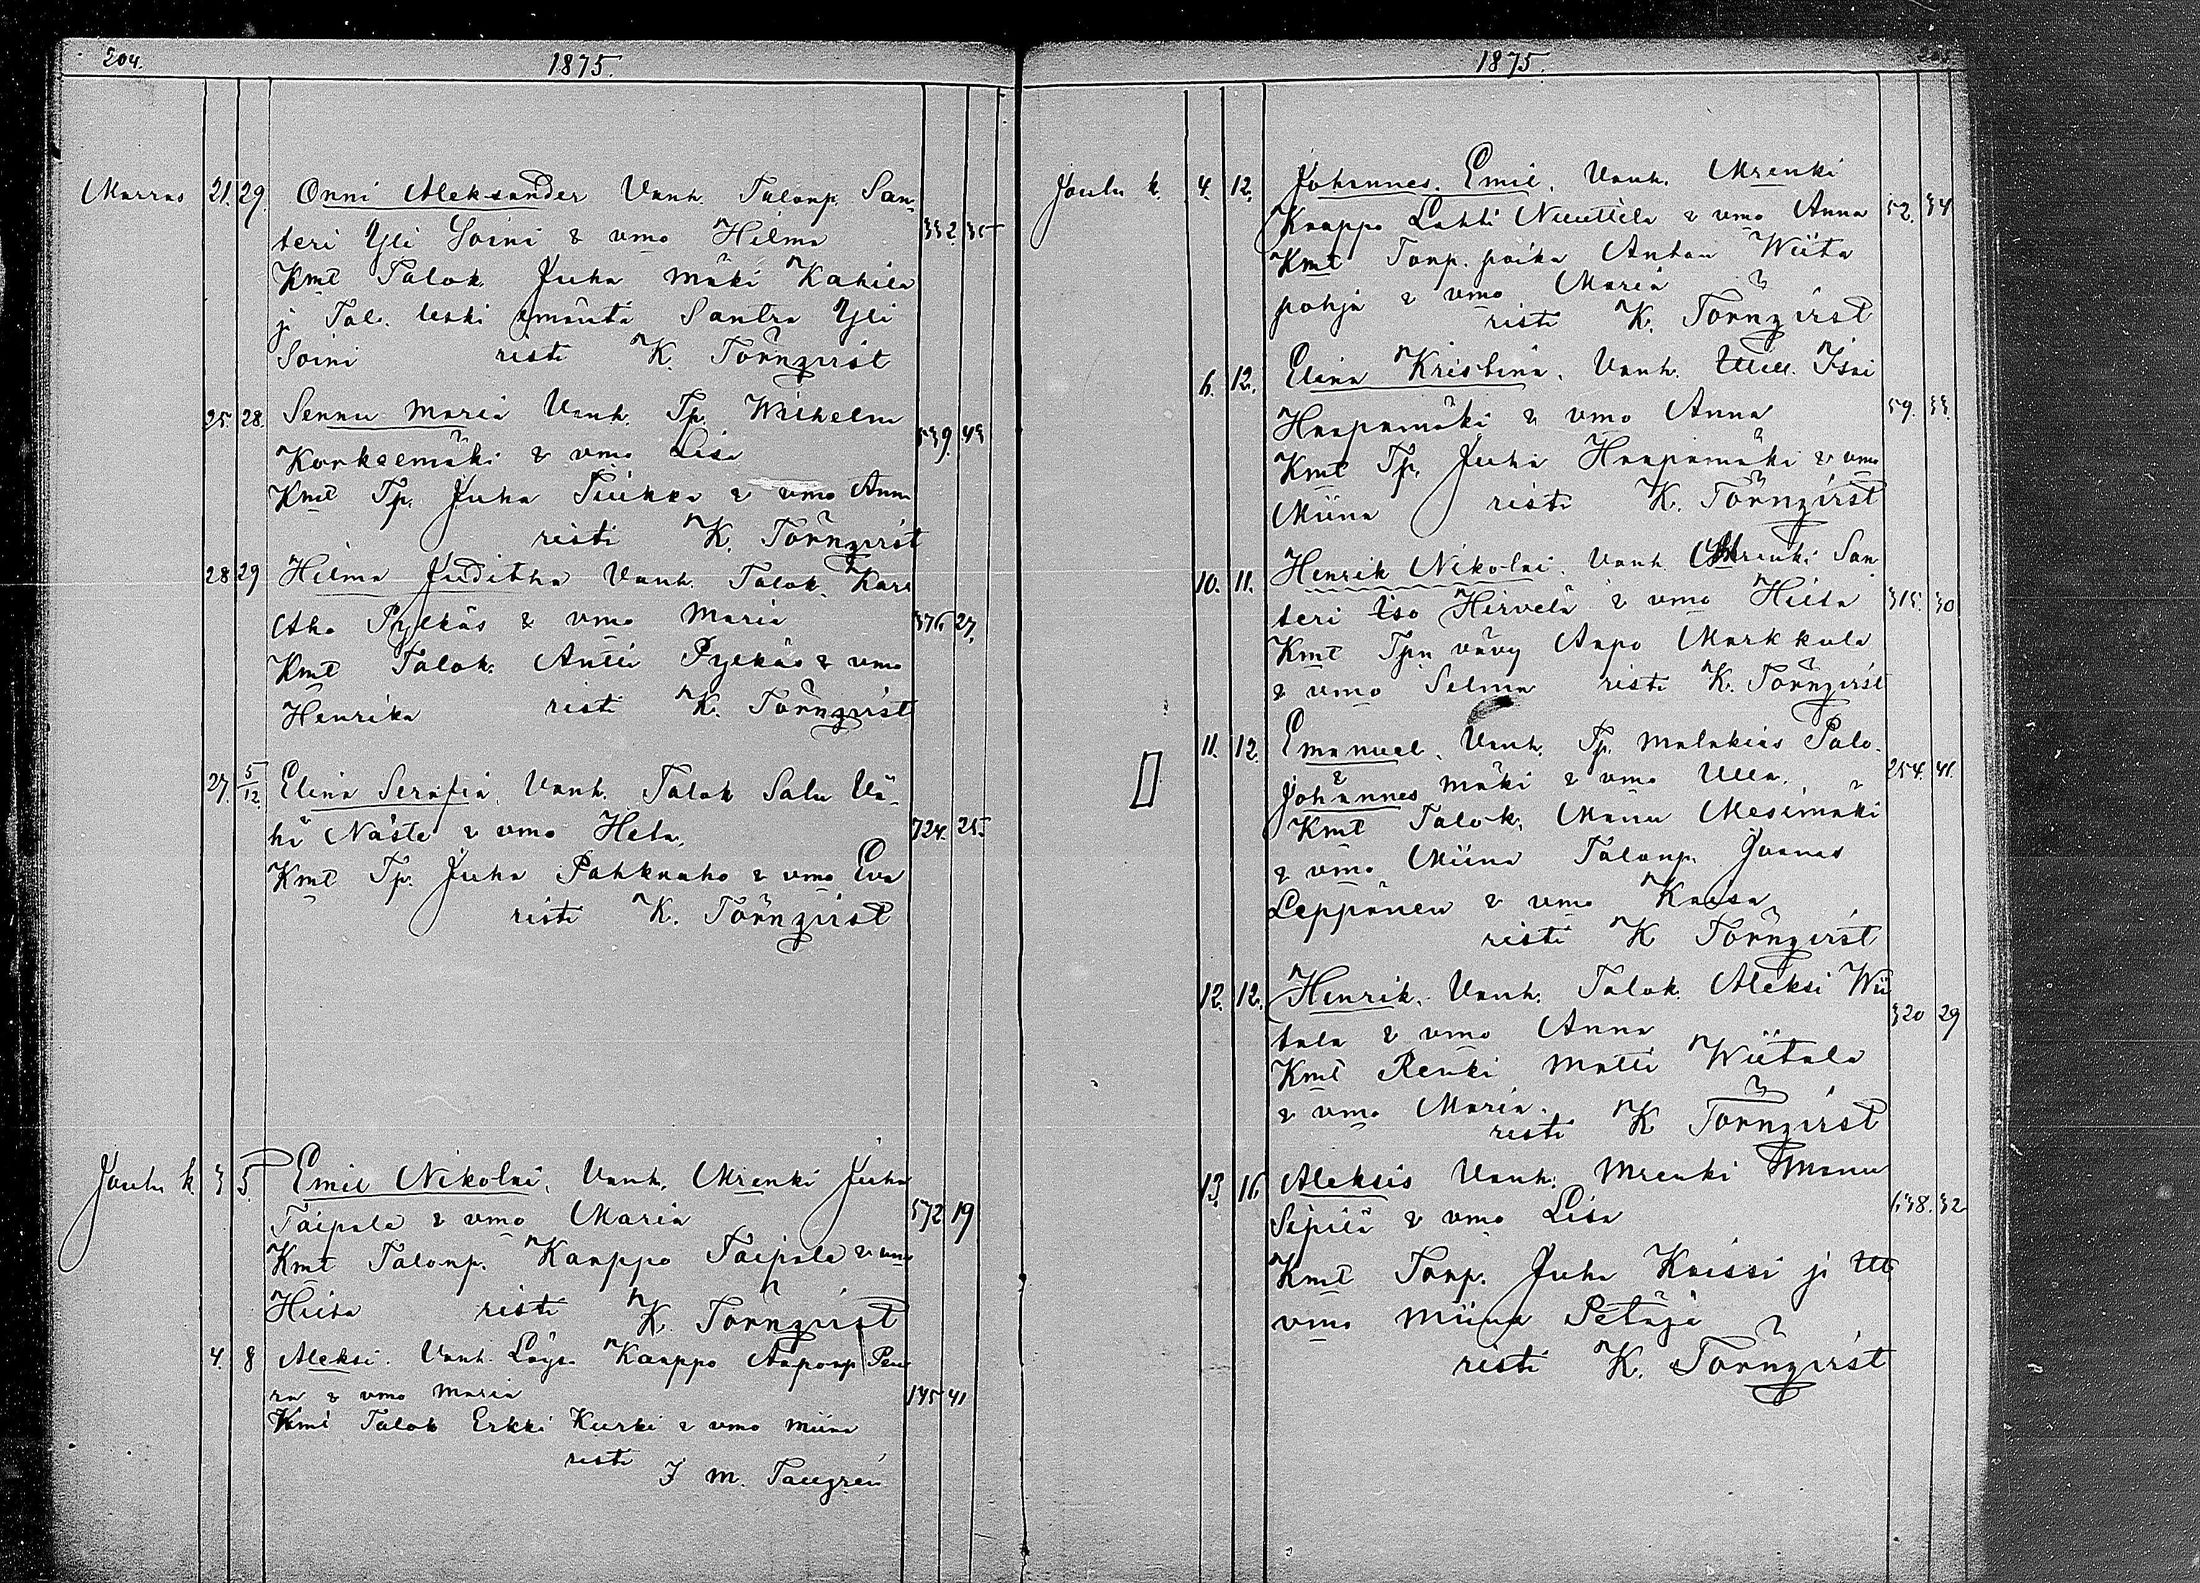 204.
1875.
Marras 21. 29. Onni Aleksander Vanh. Talonp. San-
teri Yli Soini & vmo Hilma 332. 35
Kmt Talok. Juha Mäki Kahila
ja Tal. leski emäntä Santra Yli
Soini risti K. Törnqvist
25. 28. Sanna Maria Vanh. Tp. Wilhelm
Korkeemäki & vmo Lisa 539. 43
Kmt Tp. Juha Tiikka & vmo Anna
risti K. Törnqvist
28 29 Hilma Juditha Vanh. Talok. Karl
Aho Pylkäs & vmo Maria 376 27.
Kmt Talok. Antti Pylkäs & vmo
Henrika risti K. Törnqvist
27. 5/12. Elina Serafia, Vanh. Talok Salu Vä-
hä Näste & vmo Heta. 724. 25
Kmt Tp. Juha Pahkaaho & vmo Eva
risti K. Törnqvist
Joulu k. 3 5. Emil Nikolai, Vanh. Mrenki Juha
Taipale & vmo Maria 572 19
Kmt Talonp. Kaappo Taipale & vmo
Hiita risti K. Törnqvist
4. 8 Aleksi. Vanh. Löys. Kaappo Aaponp
ra & vmo Maria 41
Kmt Talok Erkki Kurki & vmo Miina
risti
J M. Taugren
1875.
Joulu k. 4. 12. Johannes Emil. Vanh. Mrenki
Kaappo Lahti Nuuttila & vmo Anna 52. 34
Kmt Torp. poika Anton Wiita
pohja & vmo Maria
risti K. Törnqvist
6. 12. Elina Kristina. Vanh. Itsell. Isai
Haapamäki & vmo Anna 59. 33.
Kmt Tp. Juha Haapamäki & vmo
Miina risti K. Törnqvist
10. 11. Henrik Nikolai. Vanh. Mrenki San
teri Iso Hirvelä & vmo Hiita 315. 30
Kmt Tpn vävy Aapo Markkula
& vmo Selma risti K. Törnqvist
11. 12. Emanuel. Vanh. Tp. Malakias Palo-
& Johannes mäki & vmo Ulla. 254. 41.
Kmt Talok. Manu Mesimäki
& vmo Miina Talonp. Joonas
Leppänen & vmo Kaisa
risti K Törnqvist
12. 12. Henrik. Vanh. Talok. Aleksi Wii
tala & vmo Anna 320 29
Kmt Renki Matti Wiitala
& vmo Maria.
risti K Törnqvist
13. 16 Aleksis Vanh. Mrenki Manu
Säpilä & vmo Lisa 638. 32
Kmt Torp. Juha Kaissi ja Itt
vmo Miina Petäjä
risti K. Törnqvist